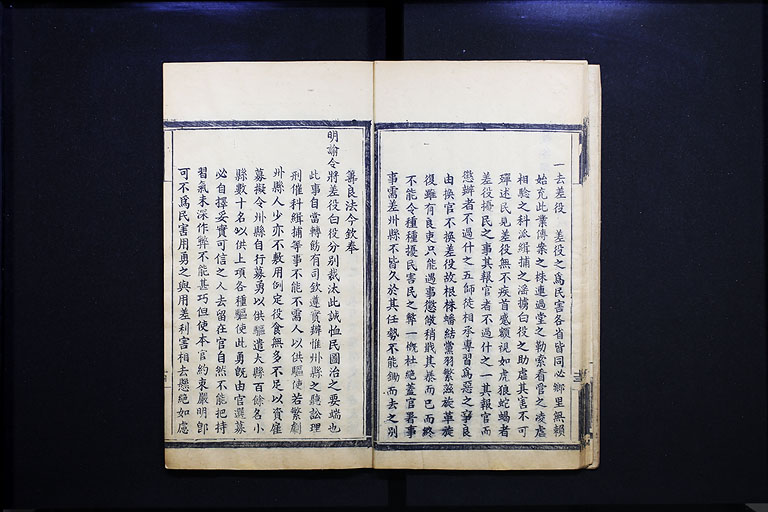 一去差役　差役之爲民害各省皆同必鄉里無賴
始充此業傳案之株連過堂之勒索看管之凌虐
相驗之科派緝捕之淫擄白役之助虐其害不可
殫述民見差役無不疾首蹙額視如虎狼蛇蝎者
差役擾民之事其報官者不過什之一其報官而
懲辦者不過什之五師徒相承專習爲惡之事良
由換官不換差役故根株蟠結黨羽繁滋旋革旋
復雖有良吏只能遇事懲儆稍戢其暴而已而終
不能令種種擾民害民之弊一概杜絕蓋官署事
事需差州縣不皆久於其任勢不能鋤而去之別
籌良法今欽奉
明諭令將差役白役分別裁汰此誠恤民圖治之要端也
此事自當轉飭有司欽遵實辦惟州縣之聽訟理
刑催科緝捕等事不能不需人以供驅使若繁劇
州縣人少亦不敷用例定役食無多不足以資雇
募擬令州縣自行募勇以供驅遣大縣百餘名小
縣數十名以供上項各種驅使此勇旣由官選募
必自擇妥實可信之人去留在官自然不能把持
習氣未深作弊不能甚巧但使本官約束嚴明卽
可不爲民害用勇之與用差利害相去懸絕如慮